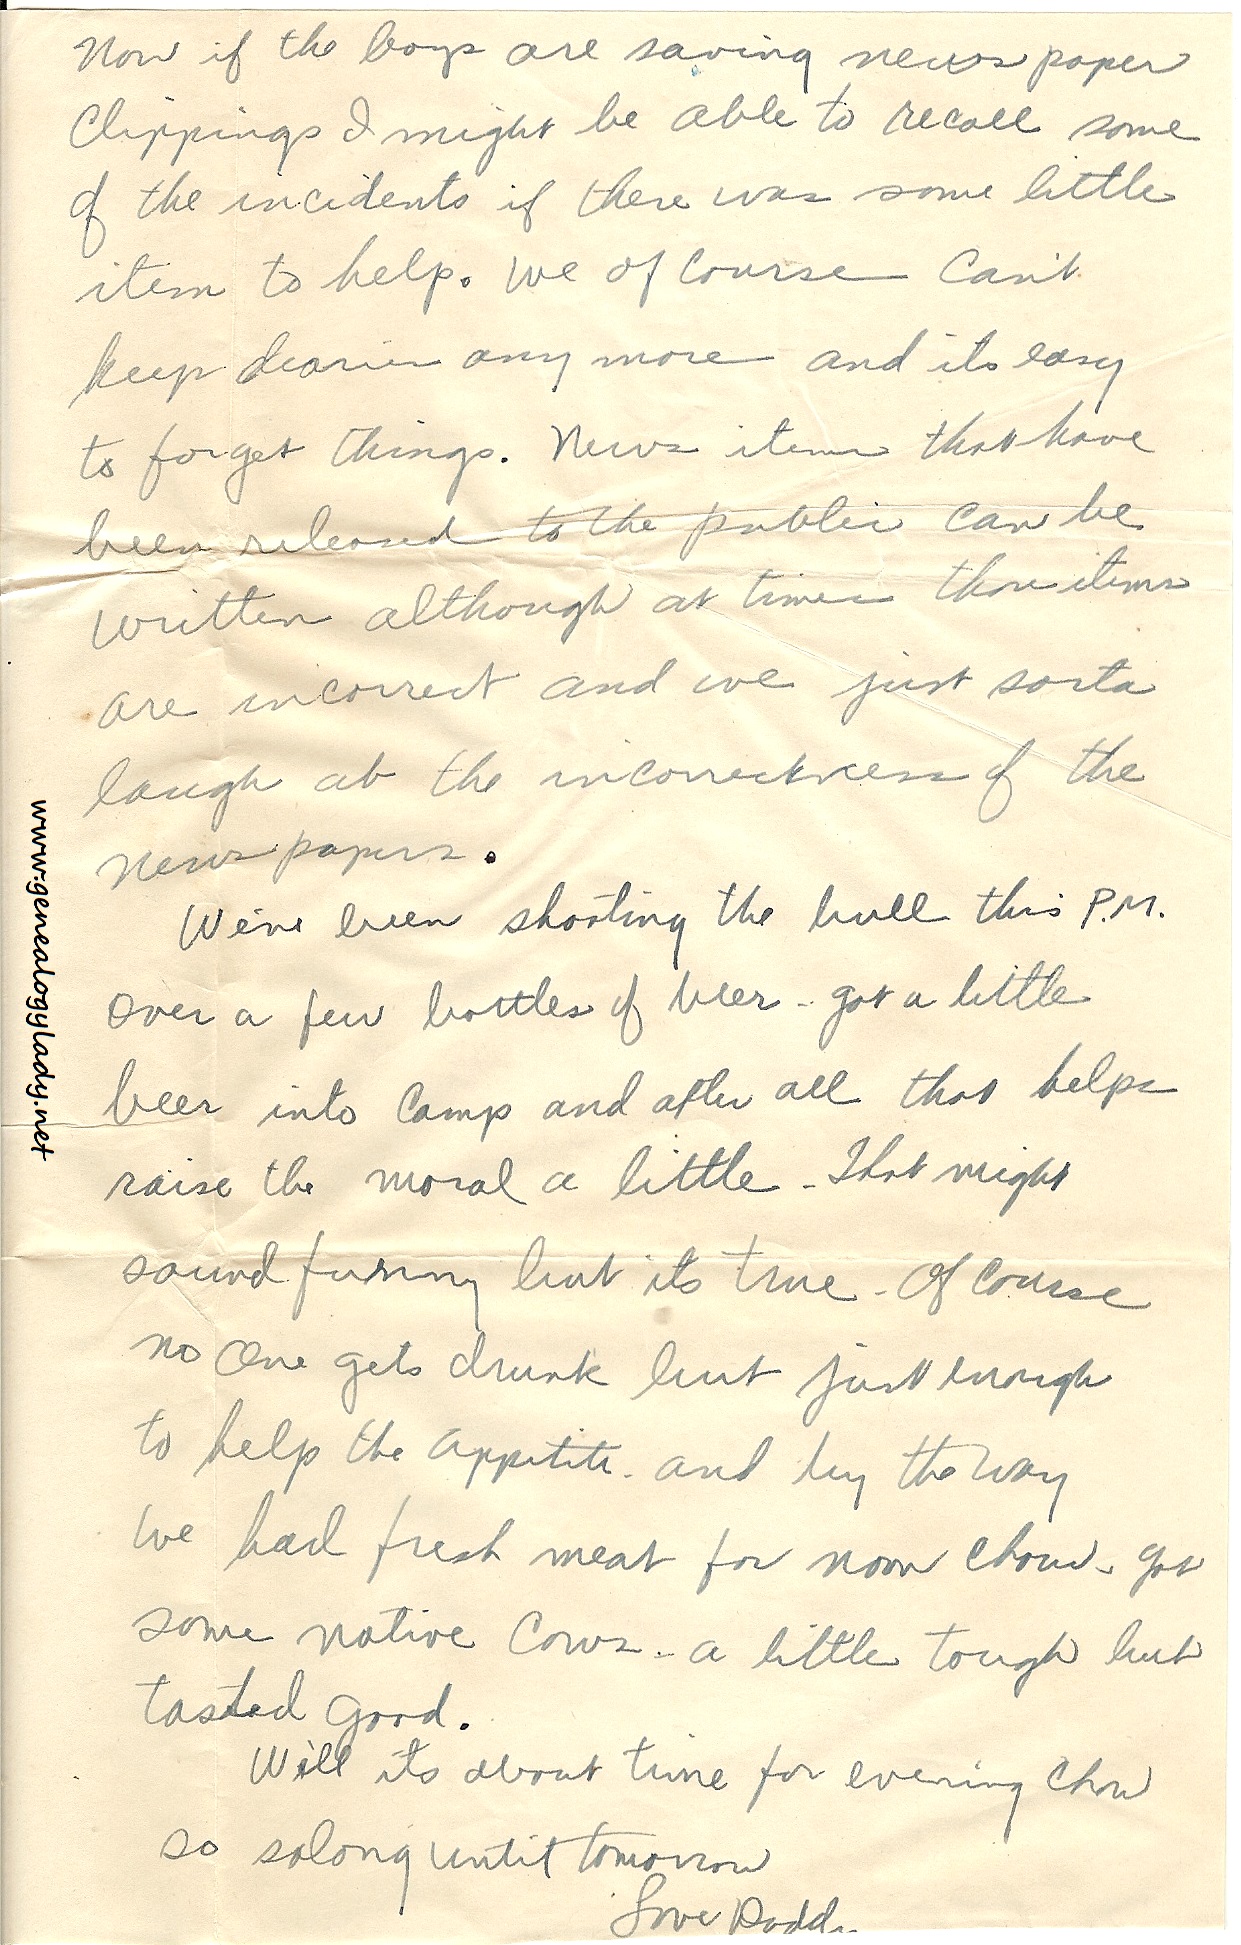 Now if the boys are saving news paper
Clippings I might be able to recall some
of the incidents if there was some little
item to help. We of course can't
keep diaries any more and its easy
to forget things. News items that have
been released to the public can be
written although at times those items
are incorrect and we just sorta
laugh at the incorrectness of the
news papers.
We've been shooting the bull this P.M.
over a few bottles of beer - got a little
beer into camp and after all that helps
raise the moral a little - That might
sound funny but its true - Of course
no one gets drunk but just enough
to help the appetite - and by the way
we had fresh meat for noon chow - got
some native cows - a little tough but
tasted good.
Well its about time for evening chow
so solong until tomorrow
Love Daddy
www.genealogylady.net